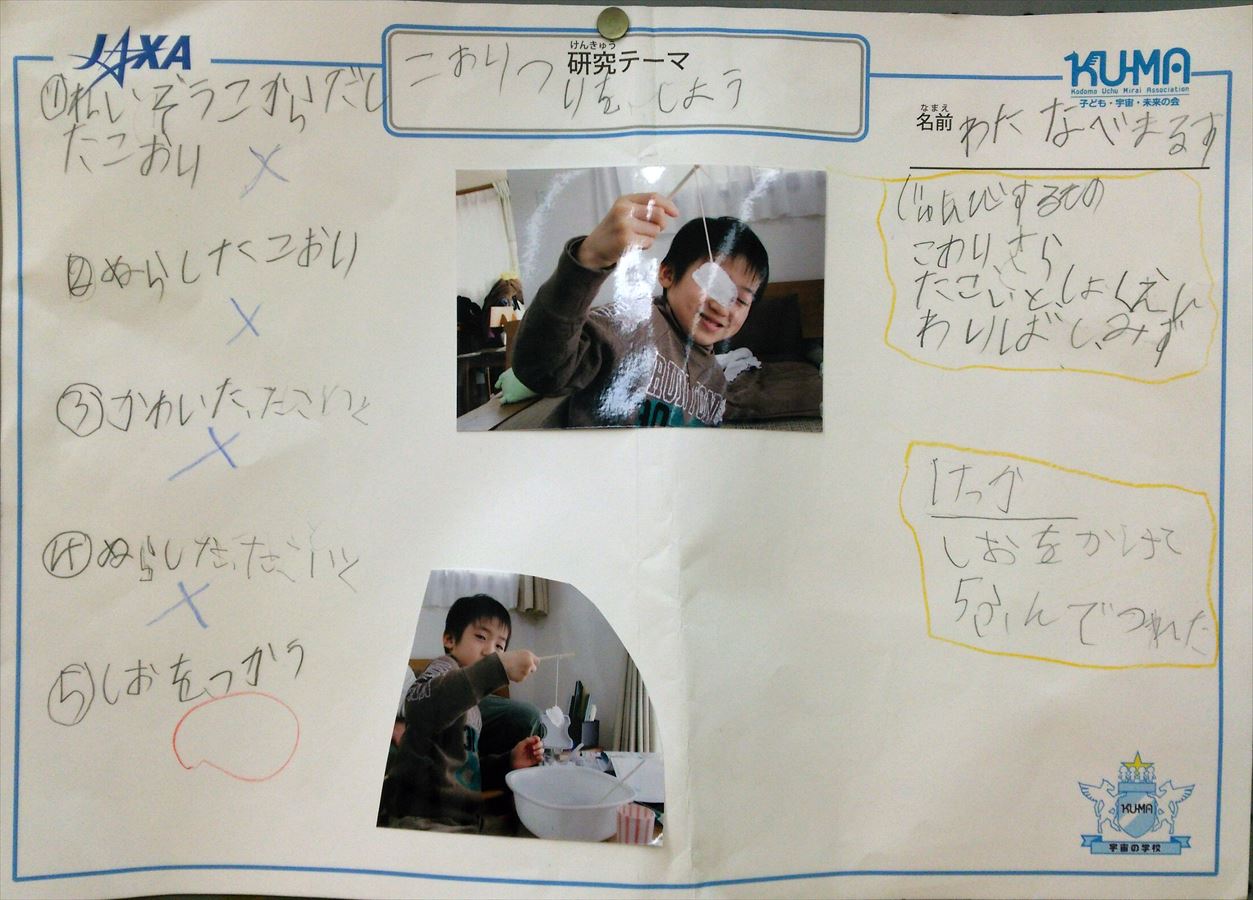 JAXA
けんきゅう
研究テーマ
こおりつりをしよう
KU-MA
Kodomo Uchu Mirai Association
子ども・宇宙・未来の会
なまえ
名前 わたなべまるす
①れいぞうこからだし
たこおり
×
②ぬらしたこおり
×
③かわいた、たこいと
×
④ぬらした、たこいと
×
⑤しおをつかう
じゅんびするもの
こおり、さら
たこいと、しょくえん
わりばし、みず
けっか
しおをかけて
5ふんでつれた
KU-MA
宇宙の学校